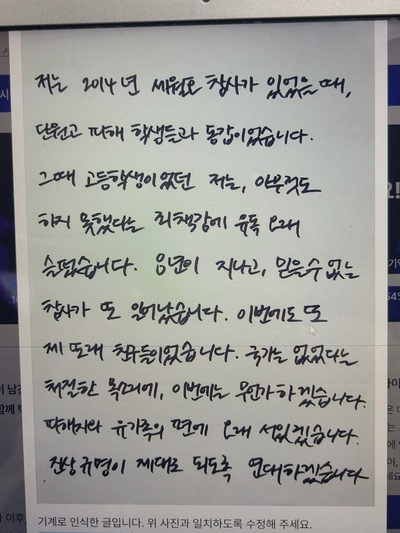 저는 2014년 세월호 참사가 있었을 때,
단원고 피해 학생들과 동갑이었습니다.
그때 고등학생이었던 저는, 아무것도
하지 못했다는 죄책감에 유독 오래
슬펐습니다. 8년이 지나고, 믿을 수 없는
참사가 또 일어났습니다. 이번에도 또
제 또래 친구들이었습니다. 국가는 없었다는
처절한 목소리에, 이번에는 무언가 하겠습니다.
피해자와 유가족의 편에 오래 서있겠습니다.
진상규명이 제대로 되도록 연대하겠습니다
기계로 인식한 글입니다. 위 사진과 일치하도록 수정해 주세요.